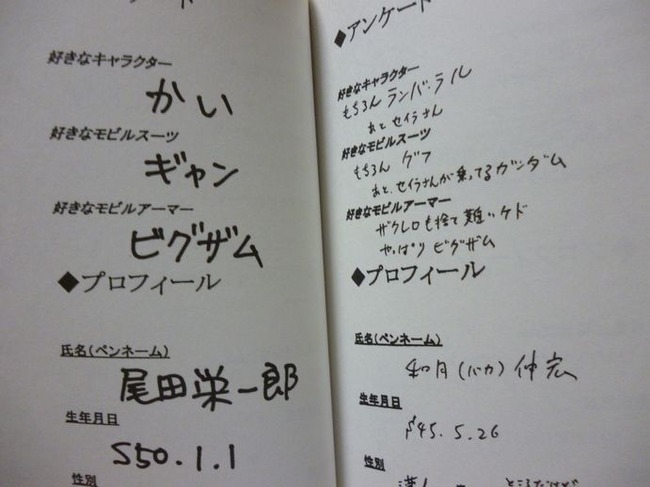 好きなキャラクター
かい
好きなモビルスーツ
ギャン
好きなモビルアーマー
ビグザム
◆プロフィール
氏名(ペンネーム)
尾田栄一郎
生年月日
S50.1.1
性別
◆アンケート
好きなキャラクター
もちろん ランバ・ラル
あと セイラさん
好きなモビルスーツ
もちろん グフ
あと、セイラさんが乗ってるガンダム
好きなモビルアーマー
ザクレロも捨て難いケド
やっぱり ビグザム
◆プロフィール
氏名(ペンネーム)
和月(バカ)伸宏
生年月日
S45.5.26
性別